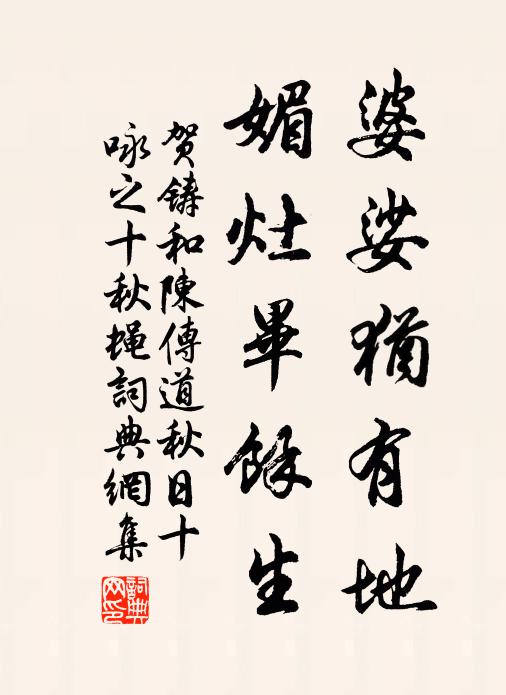 婆娑猶有地
媚灶畢餘生
贺鑄和陳傳道秋日十
咏之十秋蝇詞典網集
詞典网印